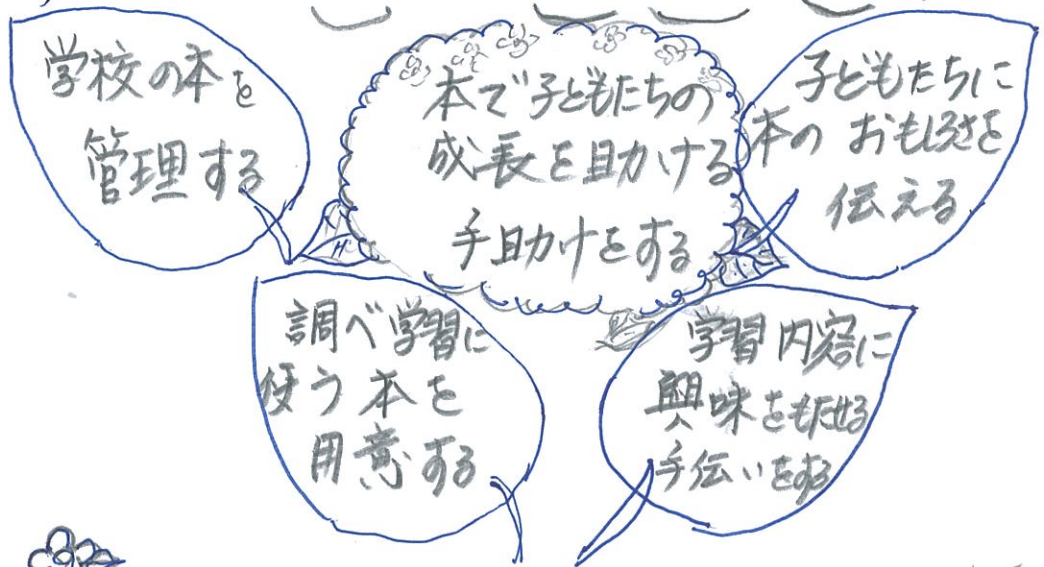 学校の本を
管理する
本で子どもたちの
成長を助ける
手助けをする
子どもたちに
本の おもしろさを
伝える
調べ学習に
使う本を
用意する
学習内容に
興味をもたせる
手伝いをする